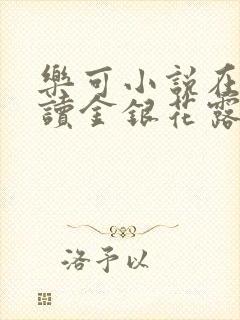 樂可小說在
讀金銀花露
洛予以